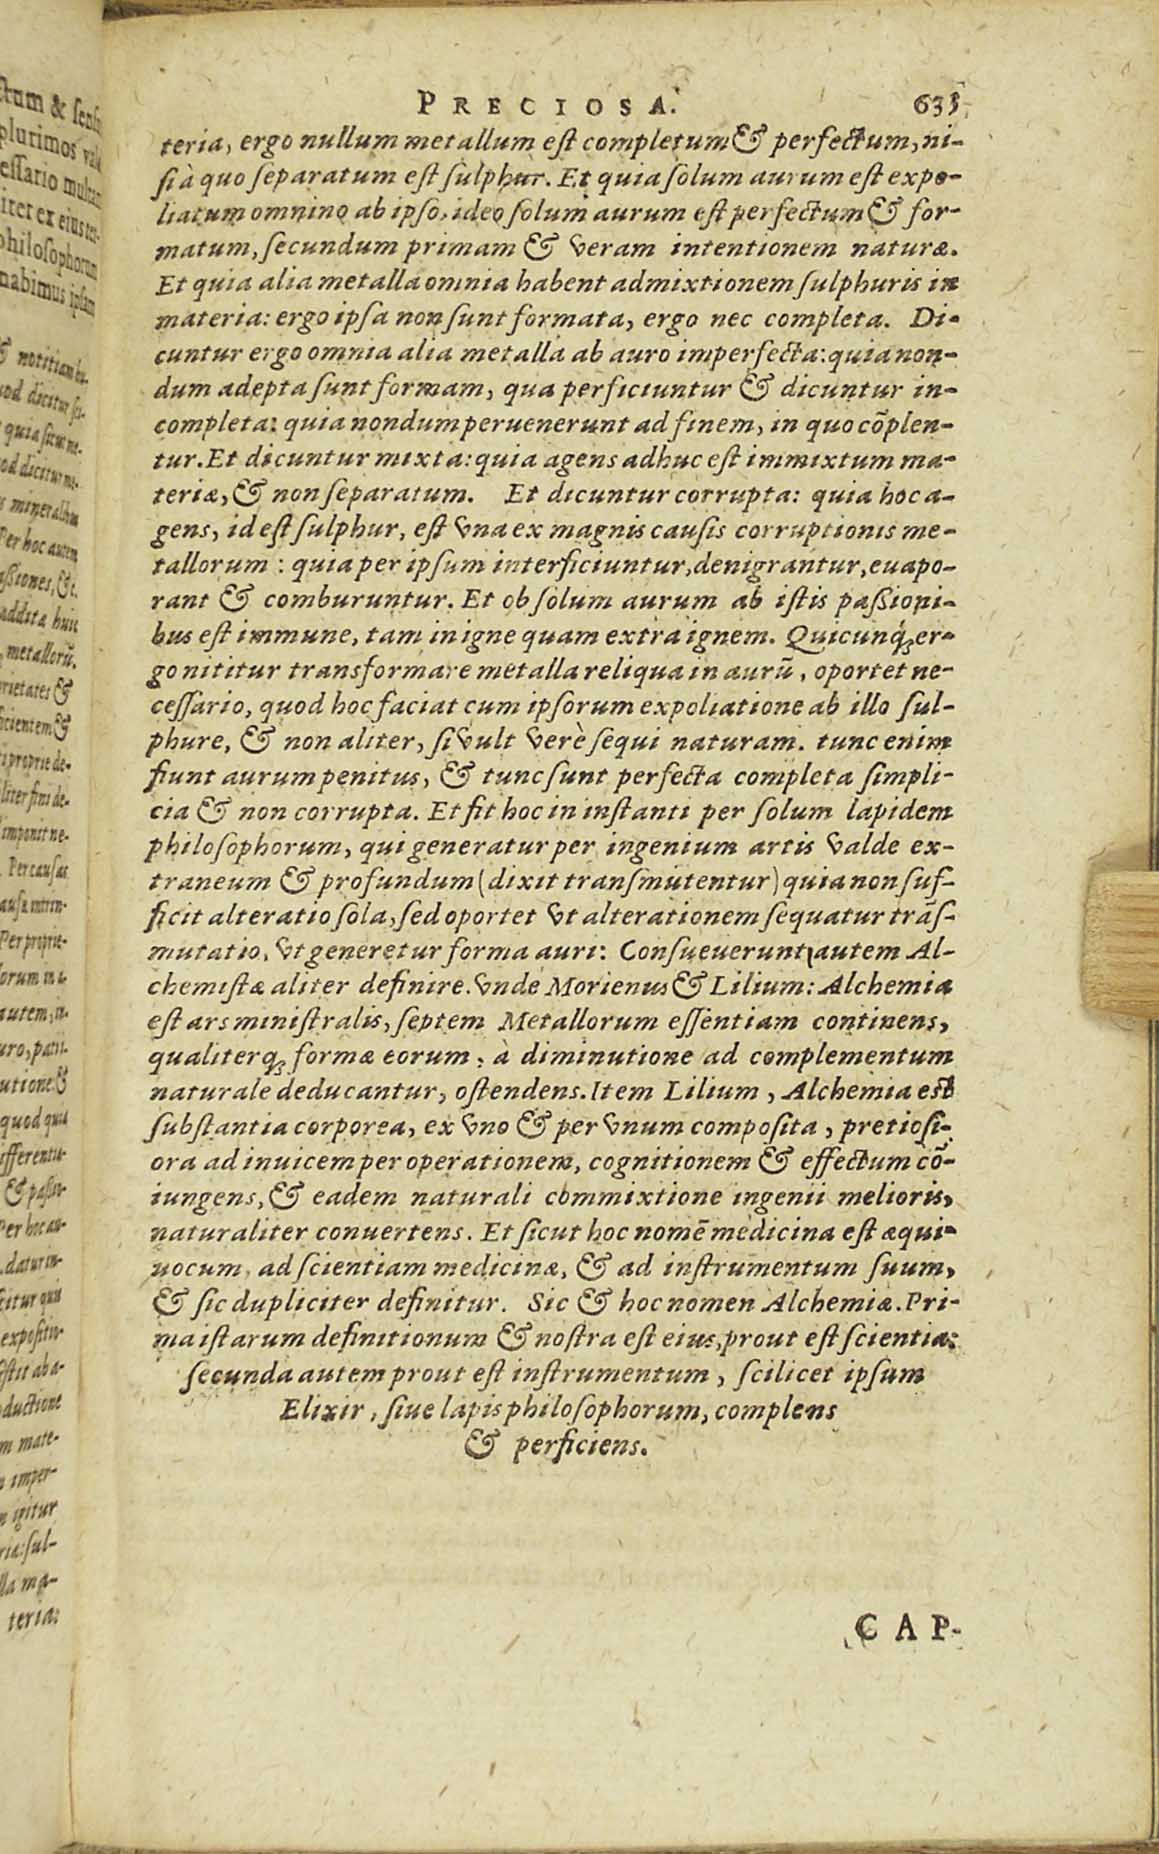 PRECIOSA. 635
teria, ergo nullum metallum est completum & perfectum, ni-
si à quo separatum est sulphur. Et quia solum aurum est expo-
liatum omnino ab ipso, ideo solum aurum est perfectum & for-
matum, secundum primam & veram intentionem naturæ.
Et quia alia metalla omnia habent admixtionem sulphuris in
materia: ergo ipsa non sunt formata, ergo nec completa. Di-
cuntur ergo omnia alia metalla ab auro imperfecta: quia non-
dum adepta sunt formam, qua perficiuntur & dicuntur in-
completa: quia nondum peruenerunt ad finem, in quo cõplen-
tur. Et dicuntur mixta: quia agens adhuc est immixtum ma-
teriæ, & non separatum. Et dicuntur corrupta: quia hoc a-
gens, id est sulphur, est vna ex magnis causis corruptionis me-
tallorum: quia per ipsum interficiuntur, denigrantur, euapo-
rant & comburuntur. Et ob solum aurum ab istis passioni-
bus est immune, tam in igne quam extra ignem. Quicunq́; er-
go nititur transformare metalla reliqua in aurũ, oportet ne-
cessario, quod hoc faciat cum ipsorum expoliatione ab illo sul-
phure, & non aliter, si vult verè sequi naturam. tunc enim
fiunt aurum penitus, & tunc sunt perfecta completa simpli-
cia & non corrupta. Et fit hoc in instanti per solum lapidem
philosophorum, qui generatur per ingenium artis valde ex-
traneum & profundum (dixit transmutentur) quia non suf-
ficit alteratio sola, sed oportet vt alterationem sequatur trãs-
mutatio, vt generetur forma auri: Consueuerunt autem Al-
chemistæ aliter definire. vnde Morienus & Lilium: Alchemia
est ars ministralis, septem Metallorum essentiam continens,
qualiterq; formæ eorum, à diminutione ad complementum
naturale deducantur, ostendens. Item Lilium, Alchemia est
substantia corporea, ex vno & per vnum composita, pretiosi-
ora ad inuicem per operationem, cognitionem & effectum cõ-
iungens, & eadem naturali commixtione ingenii melioris,
naturaliter conuertens. Et sicut hoc nomẽ medicina est æqui-
uocum, ad scientiam medicinæ, & ad instrumentum suum,
& sic dupliciter definitur. Sic & hoc nomen Alchemiæ. Pri-
ma istarum definitionum & nostra est eius, prout est scientia:
secunda autem prout est instrumentum, scilicet ipsum
Elixir, siue lapis philosophorum, complens
& perficiens.
CAP-